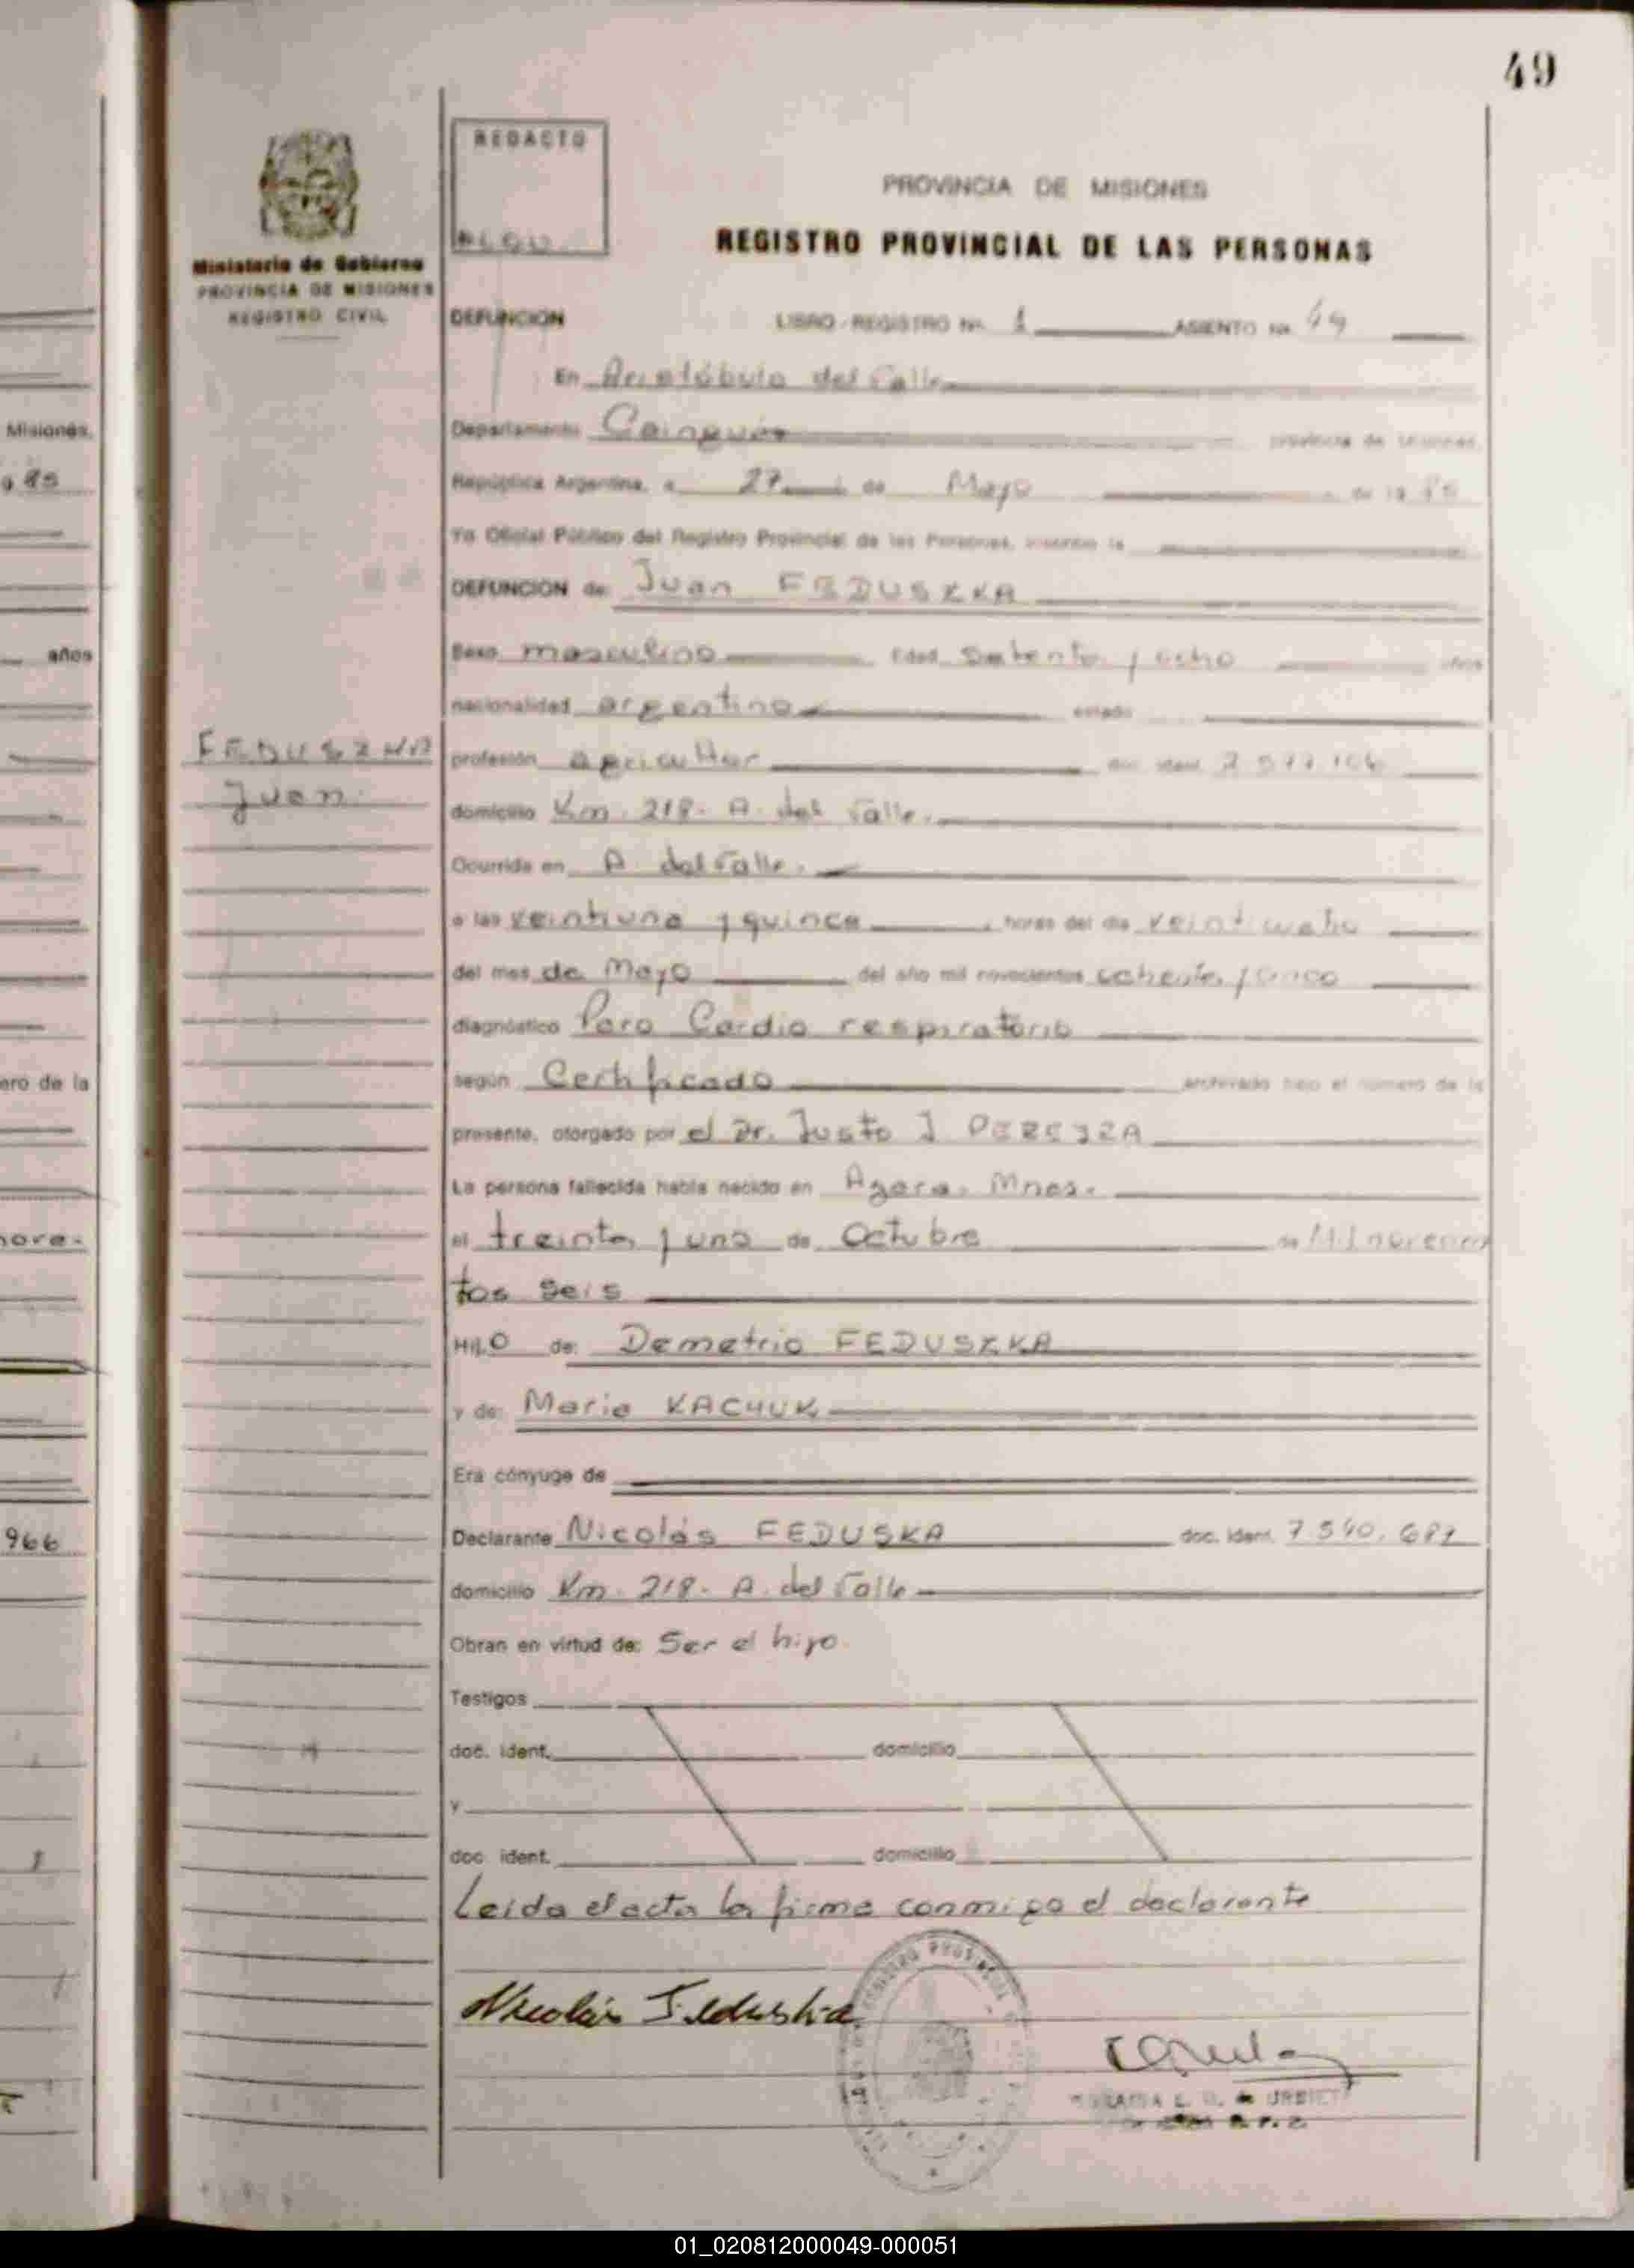 49
REDACTO
PROVINCIA DE MISIONES
REGISTRO PROVINCIAL DE LAS PERSONAS
Ministerio de Gobierno
PROVINCIA DE MISIONES
REGISTRO CIVIL
DEFUNCION LIBRO-REGISTRO No. 1 ASIENTO No. 49
En Aristóbulo del Valle
Departamento Cainguás provincia de Misiones,
República Argentina, a 27 de Mayo de 19 85
Yo Oficial Público del Registro Provincial de las Personas, inscribo la
DEFUNCION de: Juan FEDUSZKA
Sexo masculino Edad setenta y ocho años
nacionalidad argentina estado
FEDUSZKA
Juan
profesión agricultor doc. ident. 7.577.106
domicilio Km. 218- A. del Valle.
Ocurrida en A. del Valle.
a las veintiuna y quince horas del día
del mes de Mayo del año mil novecientos ochenta y cinco
diagnóstico Paro Cardio respiratorio
según Certificado archivado bajo el número de la
presente, otorgado por el Dr. Justo J PEREJRA
La persona fallecida había nacido en Azara, Mnes.
el treinta y uno de Octubre de Mil novecien
tos seis
HijO de: Demetrio FEDUSZKA
y de: Maria KACHUK
Era cónyuge de
Declarante Nicolás FEDUSKA doc. ident. 7.540.681
domicilio Km. 218- A. del Valle
Obran en virtud de: Ser el hijo
Testigos
doc. ident. domicilio
y
doc. ident. domicilio
Leida el acta la firma conmigo el declarante
Nicolás Feduska
Misiones,
9 85
años
ero de la
nove-
966
01_020812000049-000051